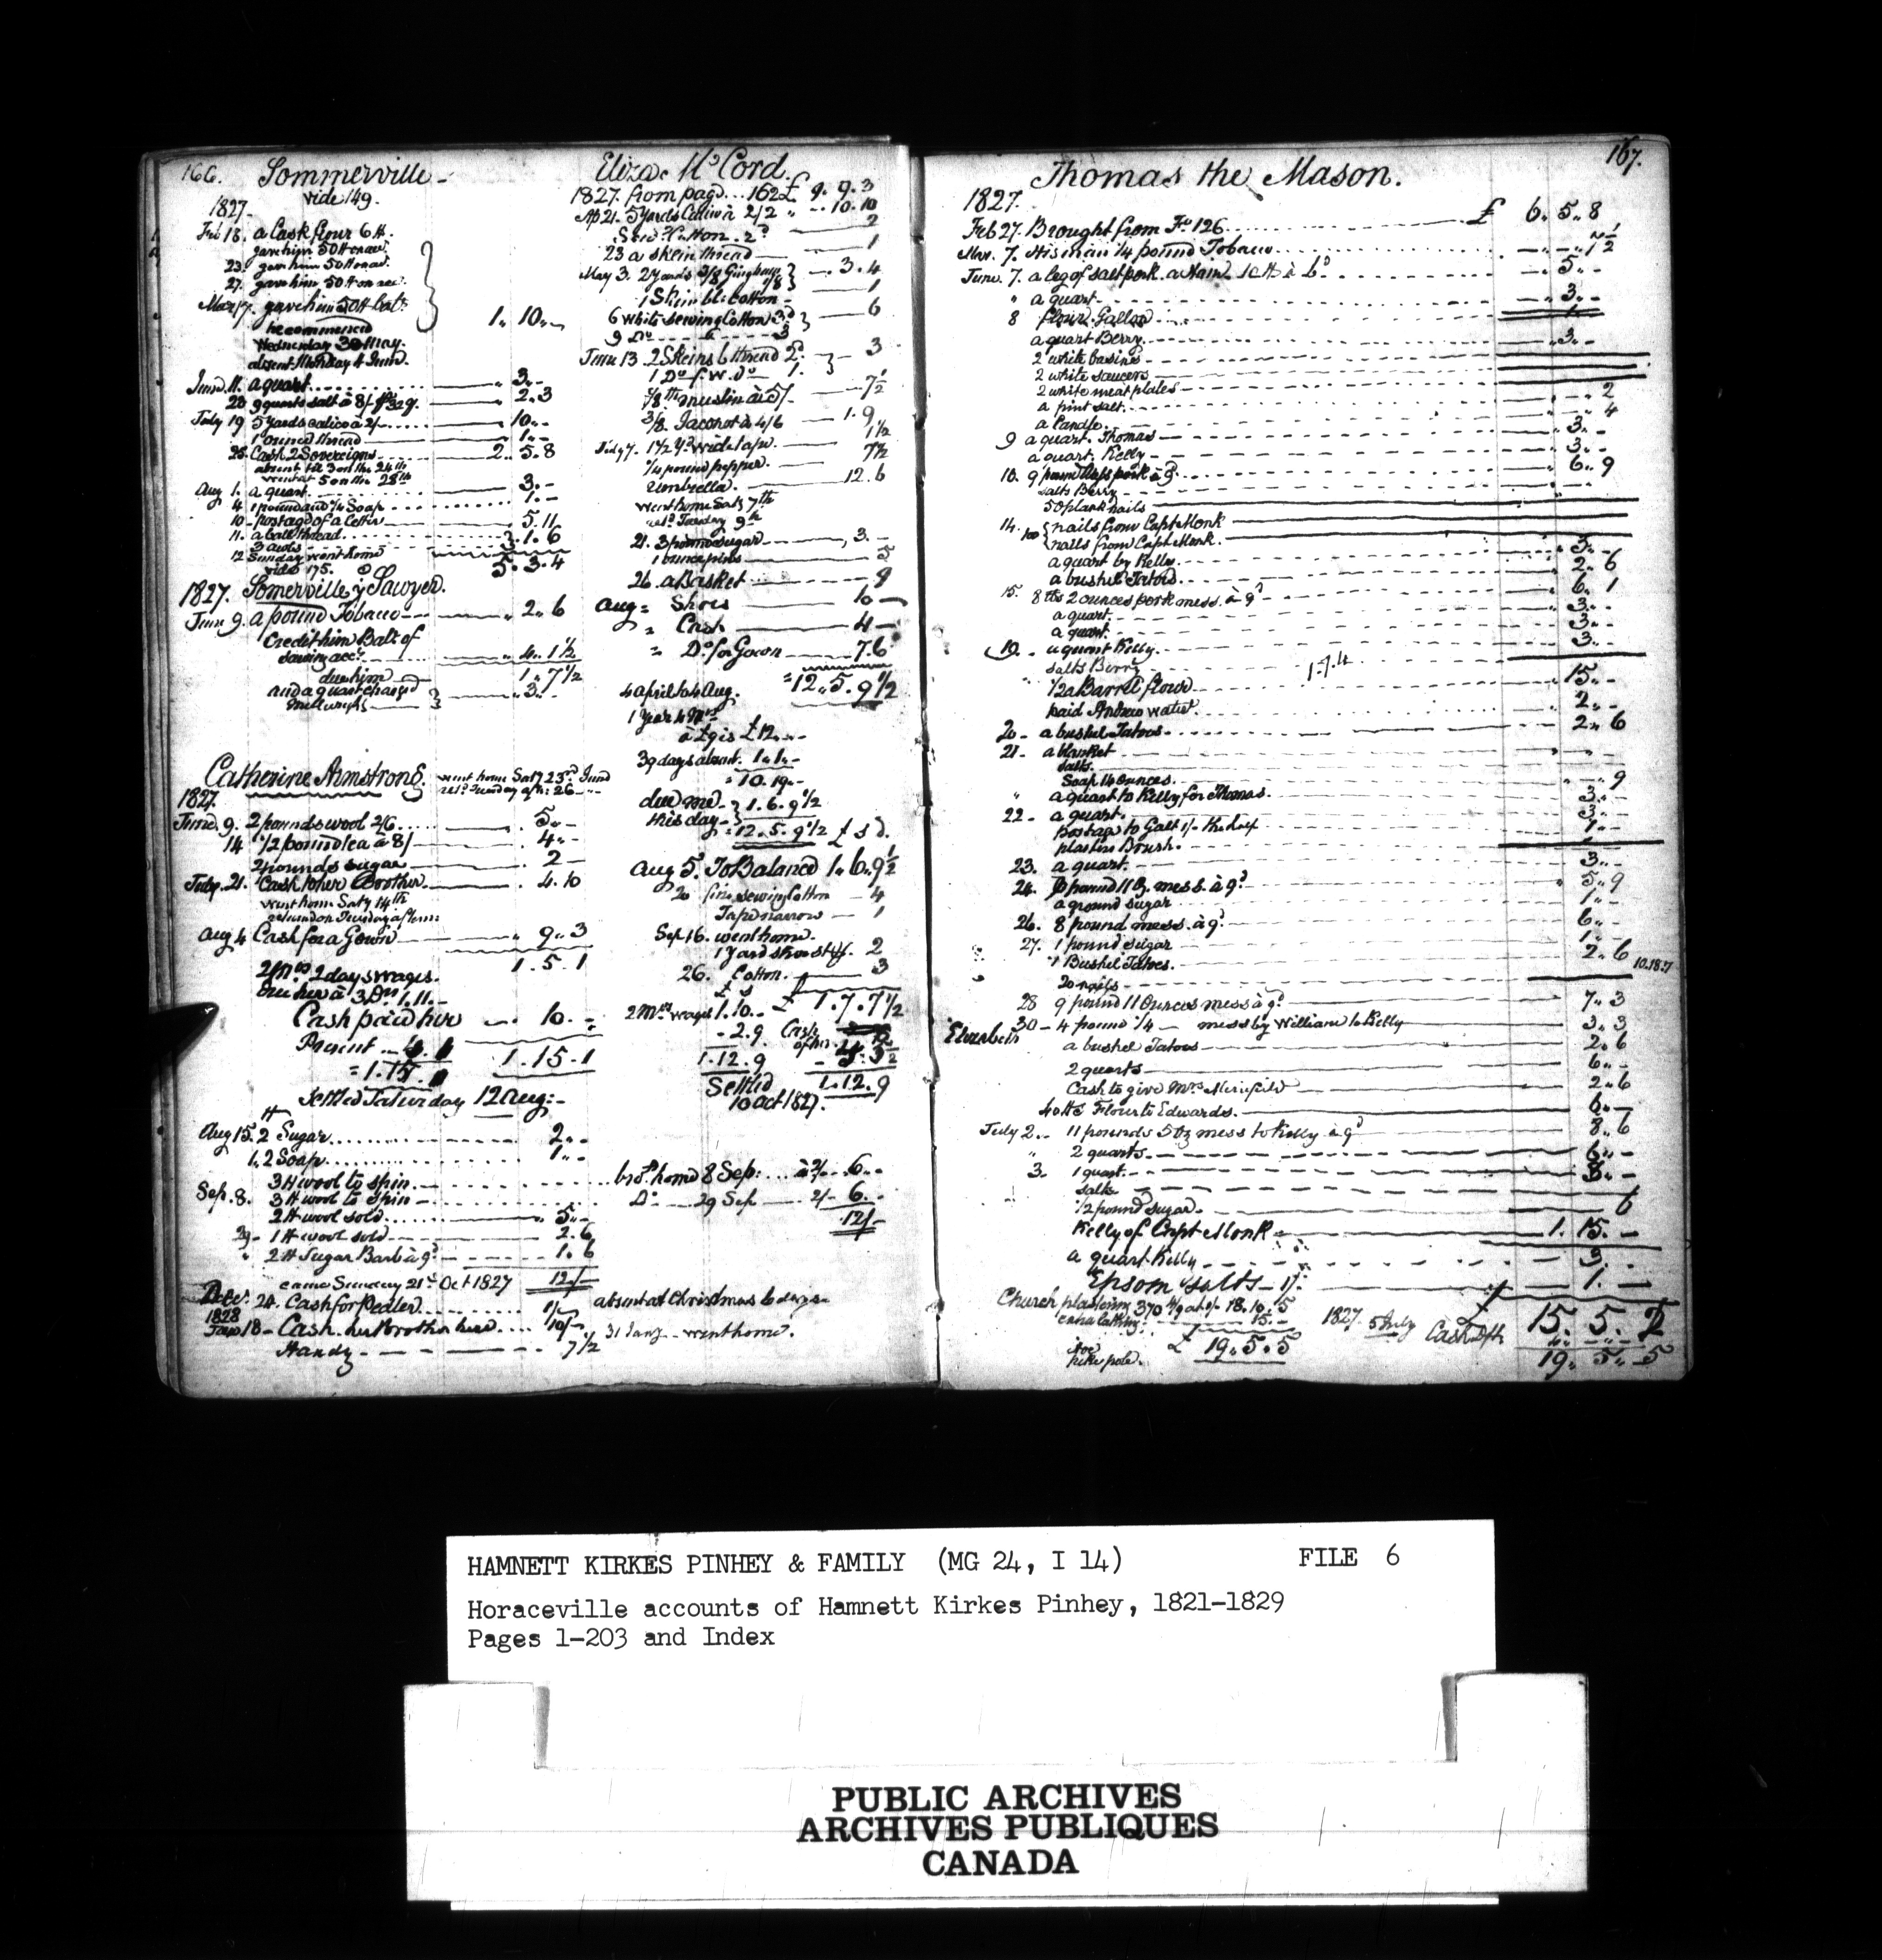 166. Sommerville
vide 149.
1827.
Feb 18. a Cask flour 6 H.
gave him 50 H on acc.
23. gave him 50 H on ac.
27. gave him 50 H on acc.
Mar 7. gave him 50 H Bal.
1. 10. -
he commenced
Wednesday 30 May.
absent Monday 4 June.
June 11. a quart 3. -
20 9 quarts salt à 8/ 2. 3
July 19 5 yards calico à 2/ 10. -
1 ounce thread 1. -
28. Cash 2 Sovereigns 2. 5. 8
absent till 3 on the 24th
went at 5 on the 28th
Aug 1. a quart 3. -
4 1 pound and 1/4 Soap 1. -
10 - postage of a letter 5. 11
11. a ball thread
3 awls 1. 6
12 Sunday went home
vide 175. 5. 3. 4
1827. Somerville y Sawyer.
June 9. a pound Tobacco 2. 6
Credit him Balc of
sawing acc. 4. 1 1/2
due him 1. 7 1/2
and a quart charged
Millwright 3. -
Catherine Armstrong. went home Saty 23rd June
retd Tuesday aftn: 26
1827.
June. 9. 2 pounds wool 2/6 5. -
14 1/2 pound tea à 8/ 4. -
2 pounds sugar 2 -
July. 21. Cash to her Brother 4. 10
went home Saty 14th
returnd on Tuesday aftn:
Aug 4 Cash for a Gown 9. 3
1. 5. 1
2 Mos 2 days wages.
due her à 3 Drs 1. 11. -
Cash paid her 10. -
Present 4. 1
= 1. 15. 1 1. 15. 1
Settled Saturday 12 Aug: -
Aug 15. 2 Sugar 2. -
1. 2 Soap 1. -
3 H wool to spin
Sep. 8. 3 H wool to spin
2 H wool sold 5. -
29 - 1 H wool sold 2. 6
" 2 H Sugar Barb à 9d 1. 6
came Sunday 21st Oct 1827 12/-
Decr. 24. Cash for Pedler 1/-
1828
Jany 18 - Cash. her Brother here 10/-
Handy 7 1/2
Eliza. McCord.
1827. from page 162 £ 9. 9. 3
Ap 21. 5 yards Calico à 2/2 10. 10
Sew. Cotton. 2d 2
23 a skein thread 1
May 3. 2 yards 3/8 Gingham 1/8 3. 4
1 Skein bl: Cotton 1
6 white sewing Cotton 3d
9 Do 6 3 6
June 13. 2 Skeins b thread 2.
1 Do f. W. Do 1. 3
1/8th muslin à 5/ 7 1/2
3/8 Jaconot à 4/6 1. 9
July 7. 1 1/2 yd wide tape 1 1/2
1/4 pound pepper. 7 1/2
Umbrella. 12. 6
went home Saty 7th
retd Tuesday 9th
21. 3 pound sugar 3. -
1 ounce pins 5
26. a Basket 9
Aug = Shoes 10 -
" Cash 4 -
= Do for Gown 7. 6
= 12. 5. 9 1/2
4 April to 4 Aug.
1 Year 4 Mos
à £9 is £12. -
39 days absent. 1. 1. -
= 10. 19. -
due me 1. 6. 9 1/2
this day = 12. 5. 9 1/2 £ s d.
Aug 5. To Balance 1. 6. 9 1/2
20 fine sewing Cotton 4
Tape narrow 1
Sep 16. went home.
1 Yard 2
26. Cotton. 3
£ 1. 7. 7 1/2
2 Mos wages 1. 10. -
- 2. 9 Cash
1. 12. 9
Settled 1. 12. 9
10 Oct 1827.
bro. home 8 Sep: à 2/ 6. -
Do 29 Sep 2/- 6. -
12/-
absent at Christmas 6 days
31 Jany - went home.
167.
Thomas the Mason.
1827.
Feb 27. Brought from Fo 126 £ 6. 5. 8
Mar. 7. His man 1/4 pound Tobacco 7 1/2
June. 7. a leg of salt pork. a Ham 10 H à 6d 5. -
" a quart 3. -
8 flour. Gallon
a quart Berry 3. -
2 white basins
2 white saucers
2 white meat plates
a pint salt 2
a Candle 4
9 a quart. Thomas 3. -
a quart. Kelly 3. -
10. 9 pound pork à 9. 6. 9
salts Berry
50 plank nails
14. nails from Capt Monk
100 nails from Capt Monk.
a quart by Kelly 3. -
a bushel Tatoes 2. 6
15. 8 lbs 2 ounces pork mess. à 9d 6. 1
a quart. 3. -
a quart. 3. -
19. a quart Kelly 3. -
salts Berry 1.7.4
1/2 a Barrel flour 15. -
paid Andrew water. 2. -
20 - a bushel Tatoes 2. 6
21 - a blanket
salts.
Soap 14 ounces. 9
" a quart to Kelly for Thomas. 3. -
22 - a quart. 3. -
postage to Galt 1/- the half 1. -
plasters Brush.
23. a quart. 3. -
24. pound 11 oz. mess. à 9d 5. 9
a ground sugar 1. -
26. 8 pound mess. à 9d 6. -
27. 1 pound sugar 1. -
1 Bushel Tatoes. 2. 6 10.18.7
20 nails
28 9 pound 11 Ounces mess à 9d 7. 3
30 - 4 pound 1/4 - mess by William to Kelly 3. 3
Elizabeth
a bushel Tatoes 2. 6
2 quarts 6. -
Cash to give Mrs Merrifield 2. 6
40 H Flour to Edwards. 6. -
July 2. - 11 pounds 5 oz mess to Kelly à 9d 8. 6
" 2 quarts. 6. -
3. 1 quart. 3. -
salts
1/2 pound sugar. 6
Kelly of Capt Monk 1. 15. -
a quart Kelly 3. -
Epsom salts - 1/: 1. -
Church plastering 370 yd at 1/- 18. 10. 5
extra lathing: 15. -
£ 19. 5. 5
1827. 5 July Cash
£ 15. 5. 
4. -
19. 5. 5
pike pole.
HAMNETT KIRKES PINHEY & FAMILY (MG 24, I 14) FILE 6
Horaceville accounts of Hamnett Kirkes Pinhey, 1821-1829
Pages 1-203 and Index
PUBLIC ARCHIVES
ARCHIVES PUBLIQUES
CANADA